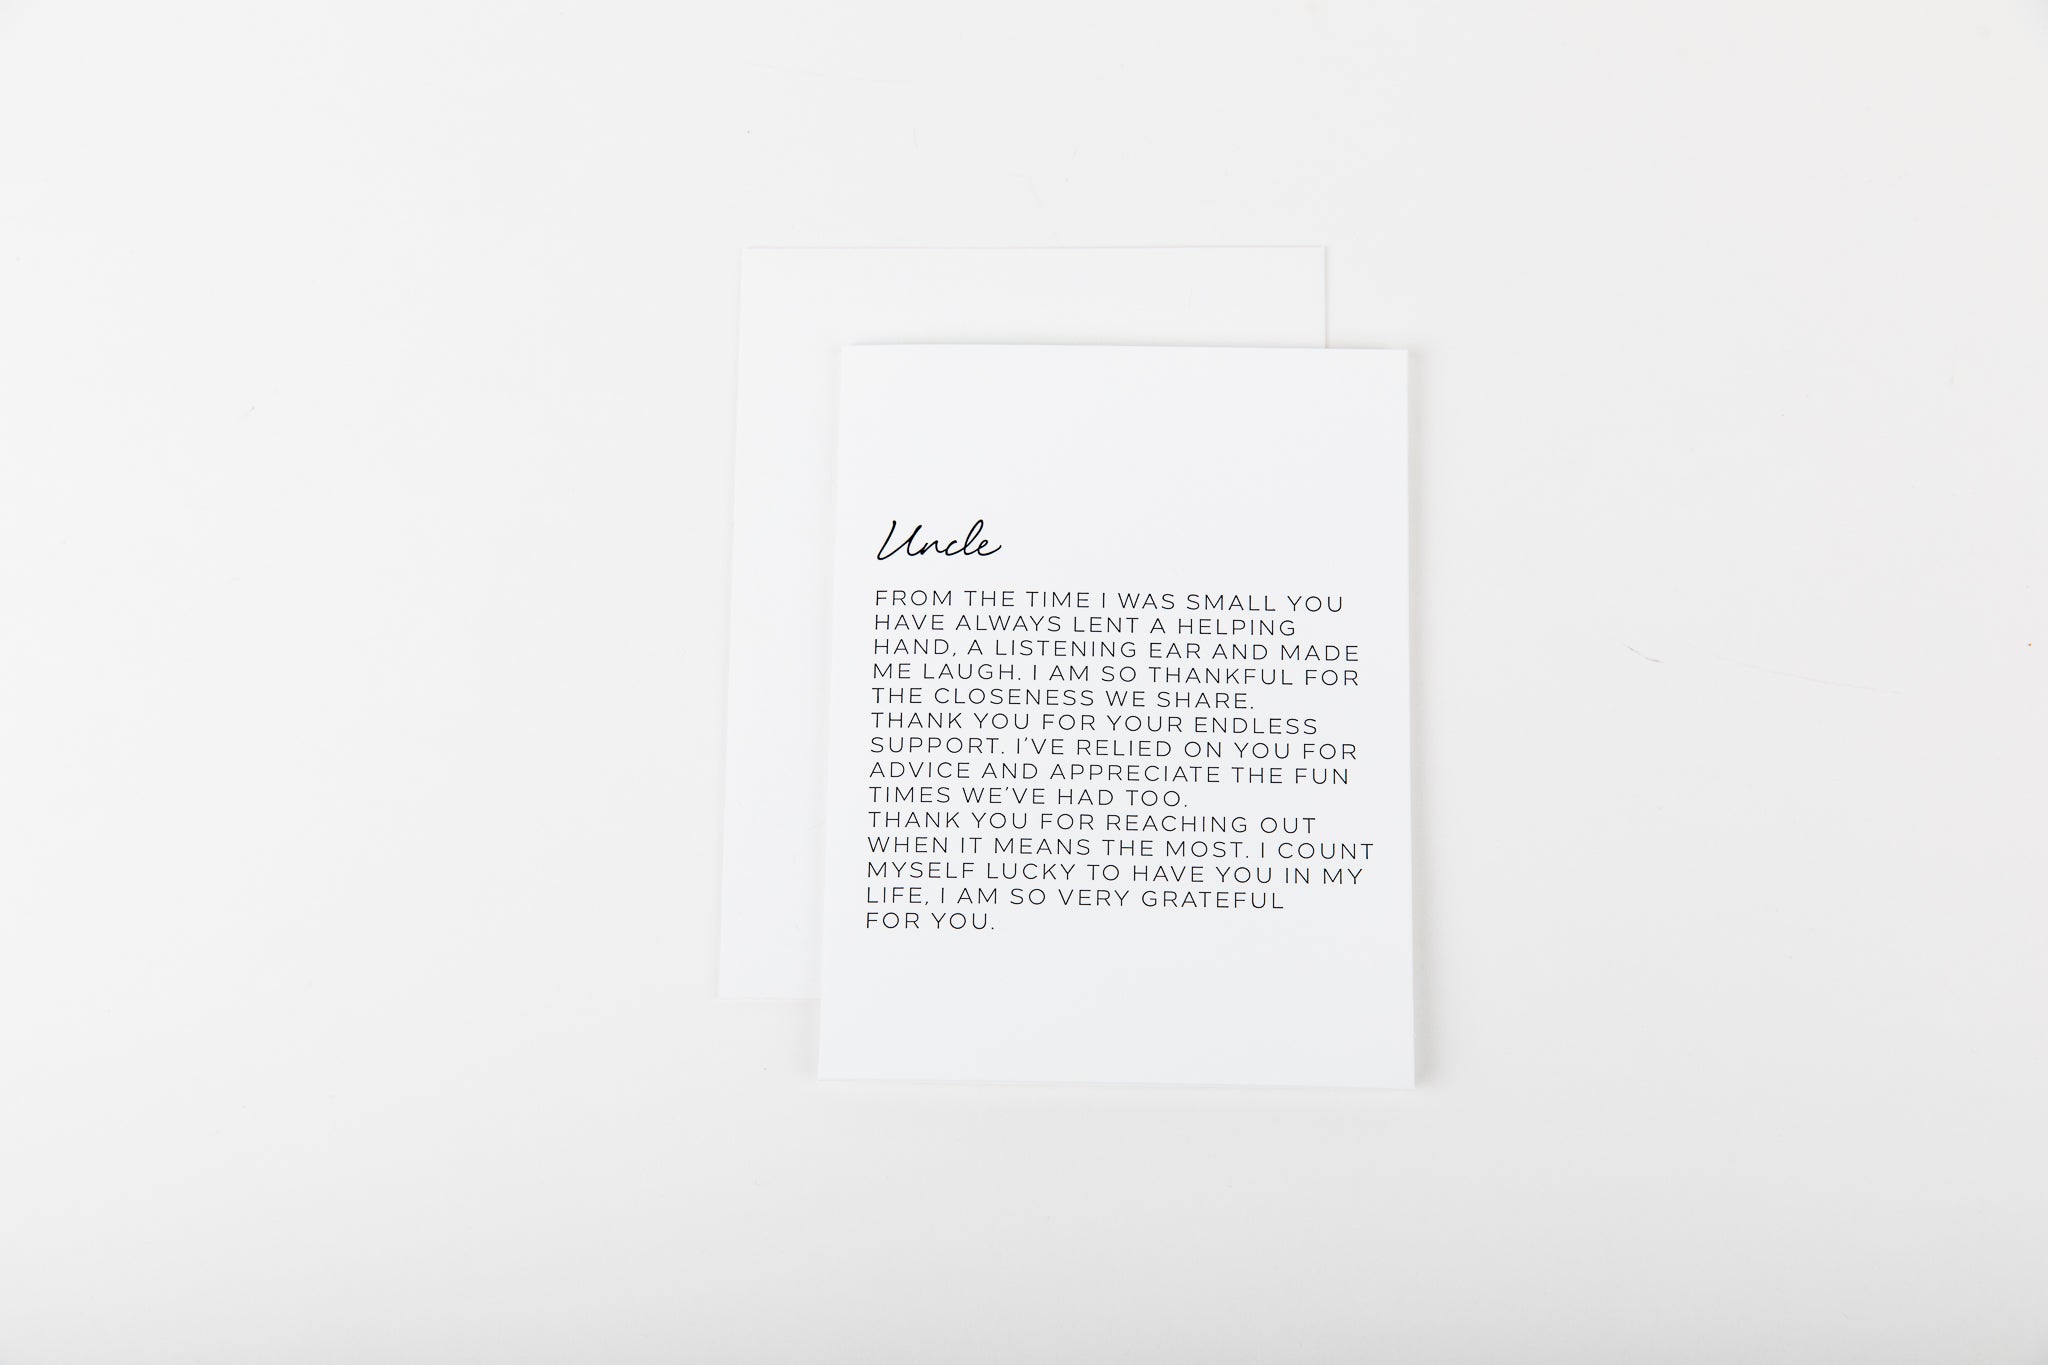 Uncle
FROM THE TIME I WAS SMALL YOU
HAVE ALWAYS LENT A HELPING
HAND, A LISTENING EAR AND MADE
ME LAUGH. I AM SO THANKFUL FOR
THE CLOSENESS WE SHARE.
THANK YOU FOR YOUR ENDLESS
SUPPORT. I’VE RELIED ON YOU FOR
ADVICE AND APPRECIATE THE FUN
TIMES WE’VE HAD TOO.
THANK YOU FOR REACHING OUT
WHEN IT MEANS THE MOST. I COUNT
MYSELF LUCKY TO HAVE YOU IN MY
LIFE, I AM SO VERY GRATEFUL
FOR YOU.